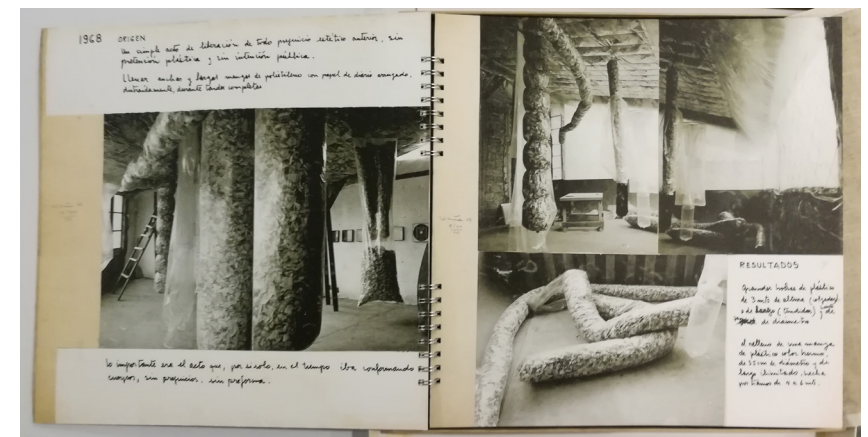 1968 ORIGEN
Un simple acto de liberación de todo prejuicio estético anterior, sin
pretensión plástica y sin intención pública.
Llenar anchas y largas mangas de polietileno con papel de diario arrugado,
distraídamente, durante tardes completas
lo importante era el acto que, por si solo, en el tiempo iba conformando
cuerpos, sin prejuicios. sin preforma.
RESULTADOS
Grandes bolsas de plástico
de 3 mts de altura (colgadas)
o de largo (tendidas) y de
de diámetro
el relleno de una manga
de plástico color
de 35 cm de diámetro y de
largo ilimitado, hecha
por tramos de 4 a 6 mts.